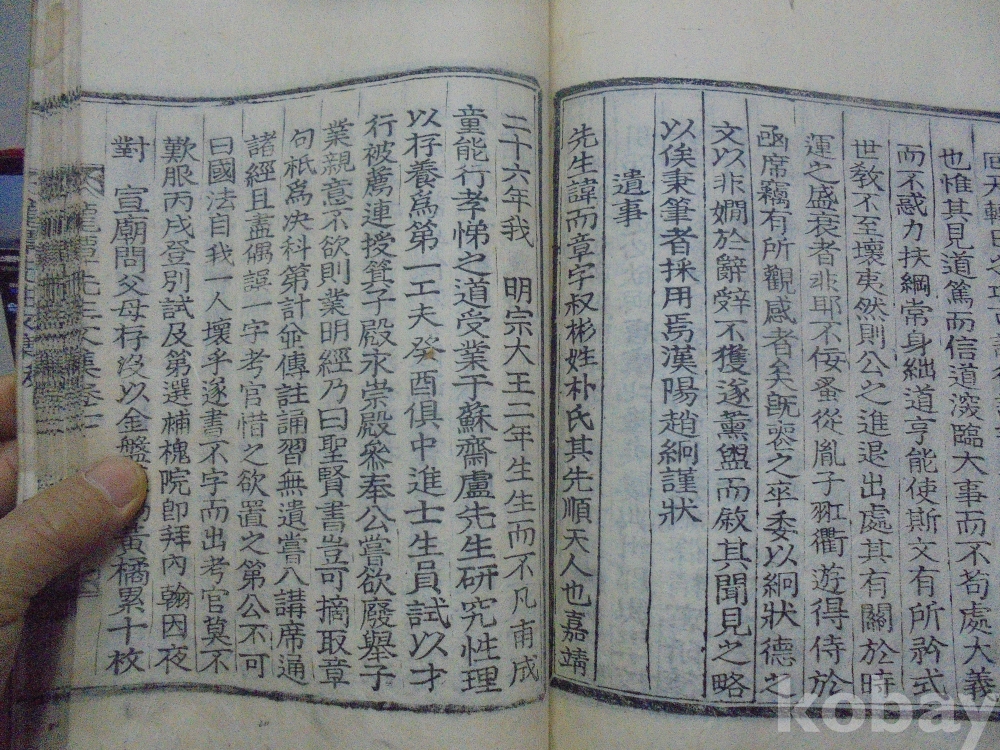 也惟其見道篤而信道深臨大事而不苟處大義
而不惑力扶綱常身絀道亨能使斯文有所矜式
世敎不至壞夷然則公之進退出處其有關於時
運之盛衰者非耶不侫蚤從胤子羾衢遊得侍於
函席竊有所觀感者矣旣喪之卒委以絅狀德之
文以非嫺於辭辤不獲遂薰盥而敍其聞見之略
以俟秉筆者採用焉漢陽趙絅謹狀
遺事
先生諱而章字叔彬姓朴氏其先順天人也嘉靖
二十六年我 明宗大王二年生生而不凡甫成
童能行孝悌之道受業于蘇齋盧先生硏究性理
以存養爲第一工夫癸酉俱中進士生員試以才
行被薦連授箕子殿永崇殿叅奉公嘗欲廢擧子
業親意不欲則業明經乃曰聖賢書豈可摘取章
句祇爲决科第計爺傳註誦習無遺嘗入講席通
諸經且盡偶誤一字考官惜之欲置之第公不可
曰國法自我一人壞乎遂書不字而出考官莫不
歎服丙戌登別試及第選補槐院卽拜內翰因夜
對 宣廟問父母存沒以金盤 黃橘累十枚
龍潭先生文集卷
kobay